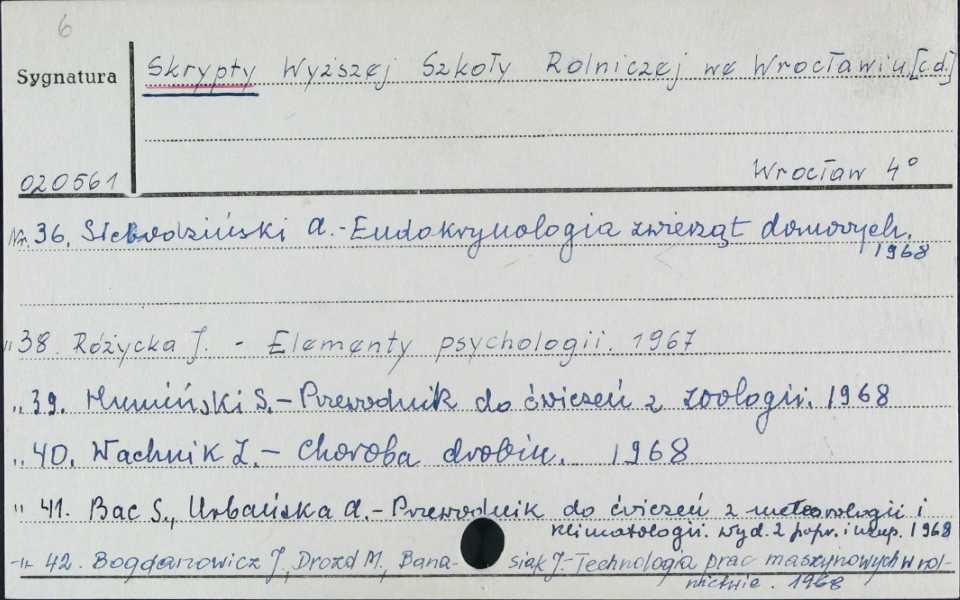 6
Sygnatura
Skrypty Wyższej Szkoły Rolniczej we Wrocławiu [c.d.]
020561
Wrocław 4°
Nr. 36. Siebodziński A. - Endokrynologia zwierząt domowych.
1968
" 38. Różycka J. - Elementy psychologii. 1967
" 39. Humiński S. - Przewodnik do ćwiczeń z zoologii. 1968
" 40. Wachnik Z. - Choroba drobiu. 1968
" 41. Bac S., Urbańska A. - Przewodnik do ćwiczeń z meteorologii i
klimatologii. Wyd. 2 popr. i uzup. 1968
-"- 42. Bogdanowicz J., Drozd M., Bana-siak J. - Technologia prac maszynowych w rol-
nictwie. 1968